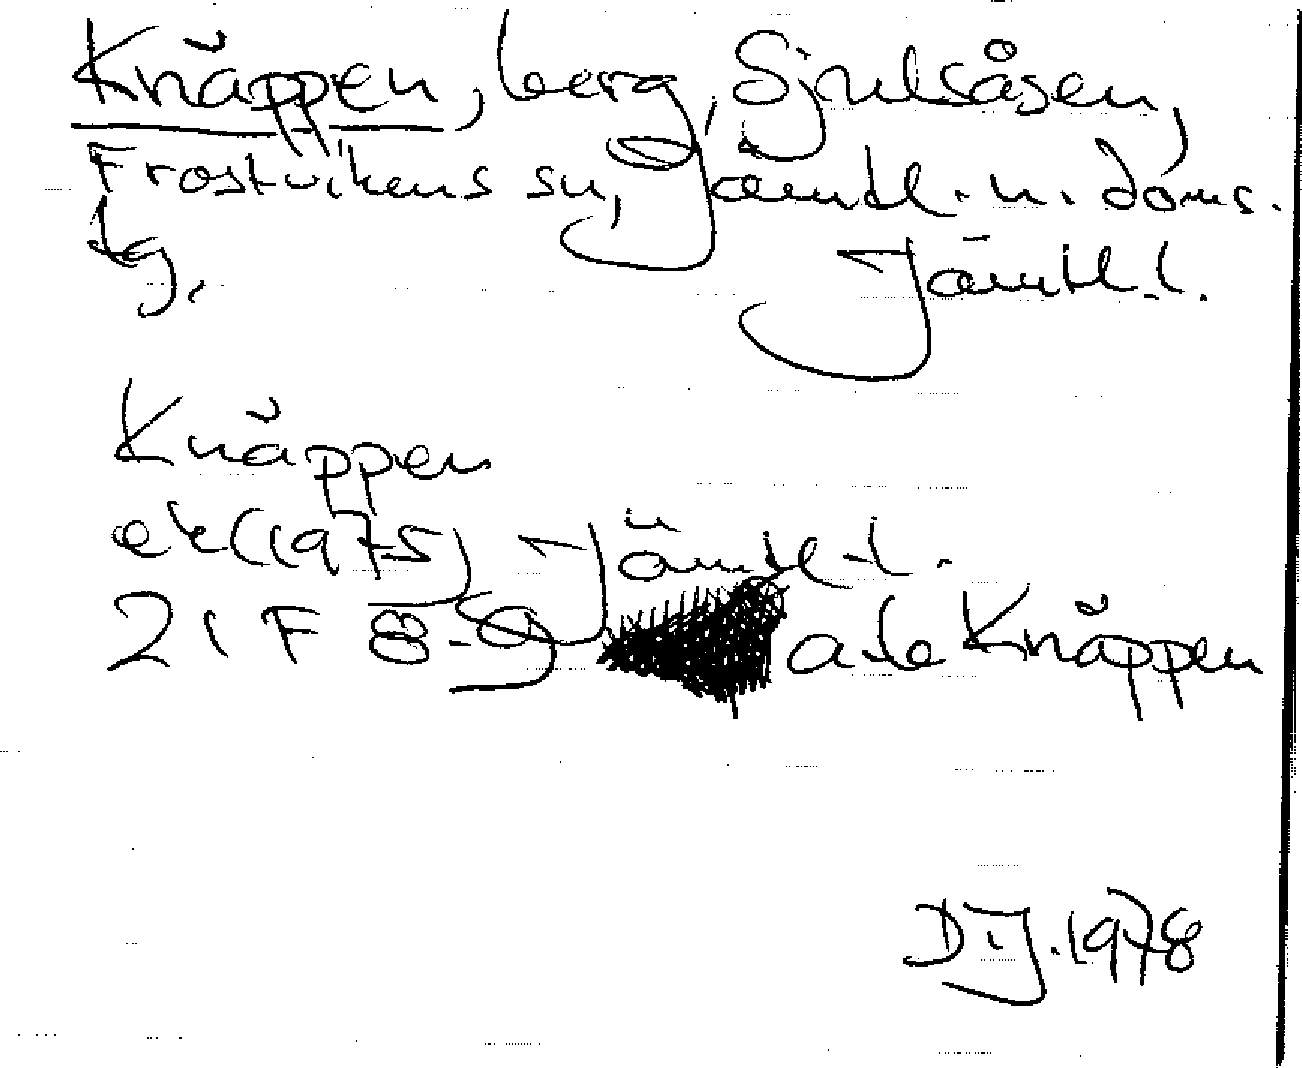 Knäppen, berg, Sjulsåsen,
Frostvikens sn, Jämtl. n. doms.
tg.
Jämtl. l.
Knäppen
ek (1975) Jämtl. l.
21 F 8-9 a-b Knäppen
D.J. 1978